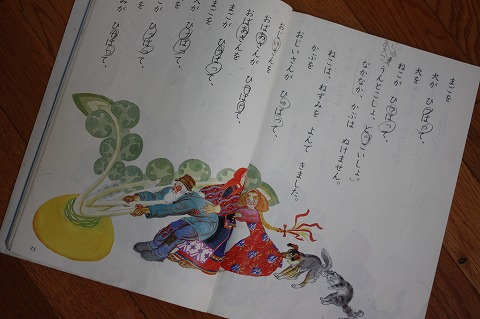 まごを
犬が ひっぱって、
犬を
ねこが ひっぱって、
うんとこしょ、どっこいしょ。」
なかなか、かぶは ぬけません。
ねこは、ねずみを よんで きました。
かぶを
おじいさんが ひっぱって、
おじいさんを
おばあさんが ひっぱって、
おばあさんを
まごが ひっぱって、
まごを
が ひっぱって、
が ひっぱって、
71